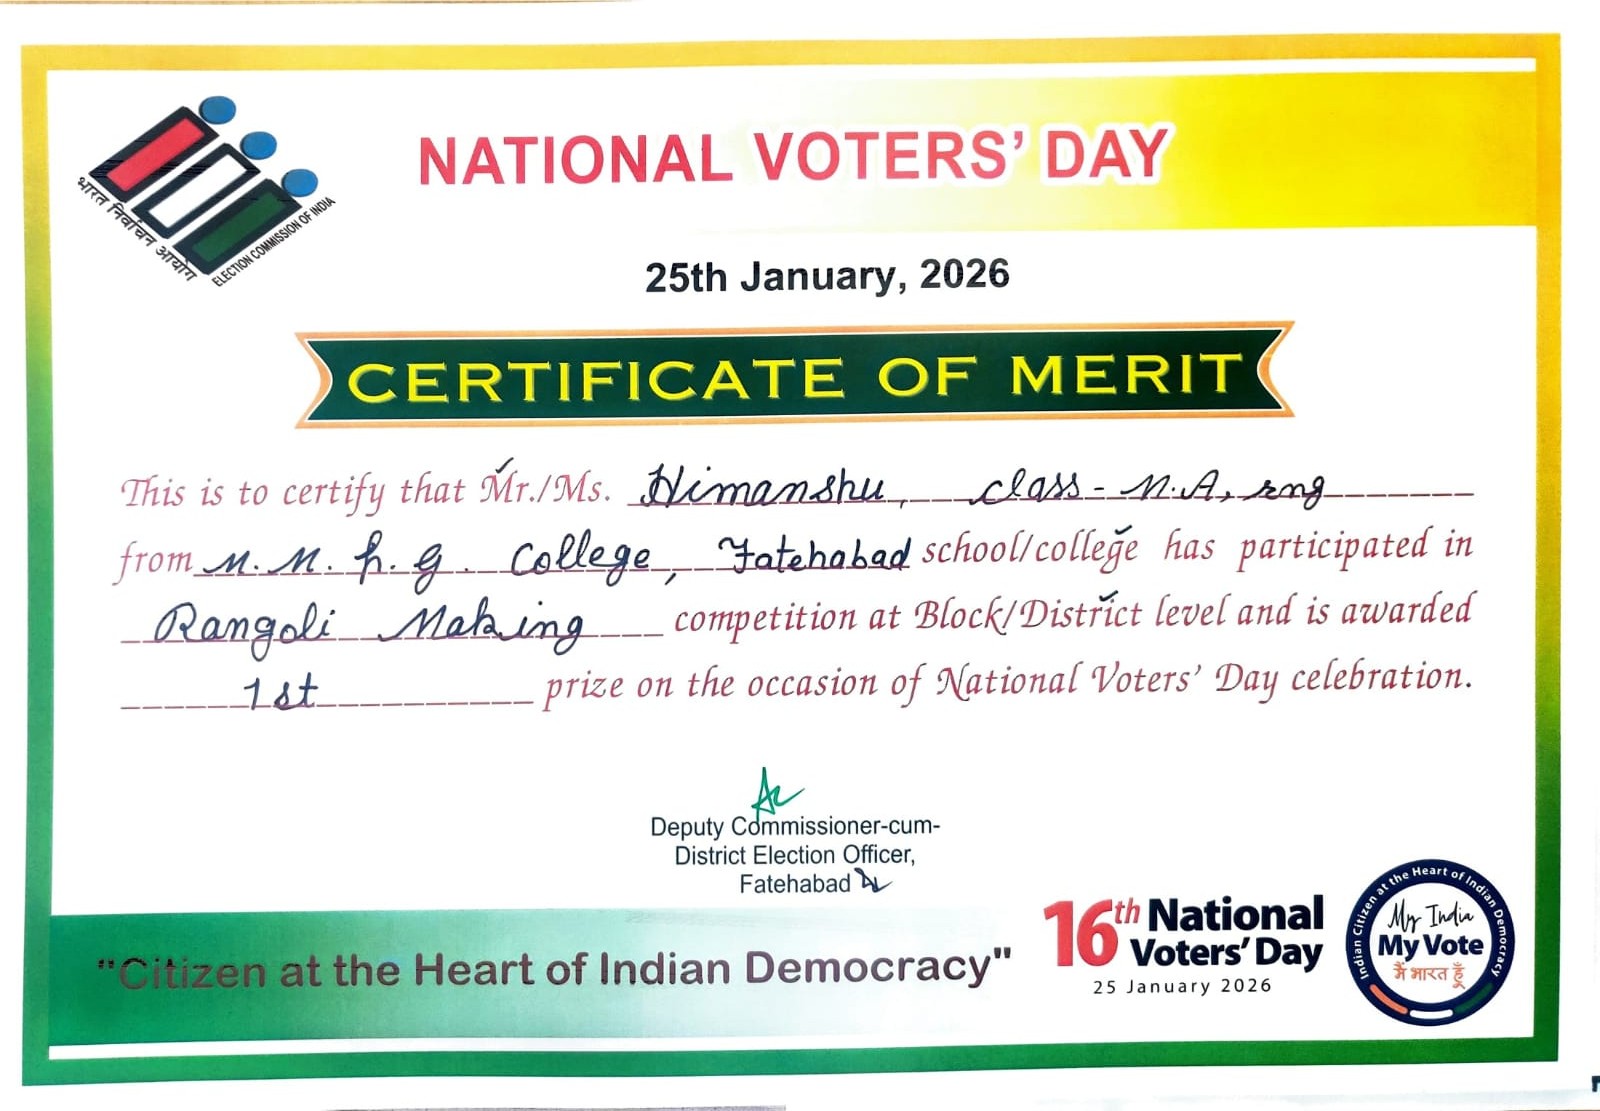 भारत निर्वाचन आयोग
ELECTION COMMISSION OF INDIA
NATIONAL VOTERS' DAY
25th January, 2026
CERTIFICATE OF MERIT
This is to certify that Mr./Ms. Himanshu, class - M.A, eng
from M.M. P.G. College, Fatehabad school/college has participated in
Rangoli Making competition at Block/District level and is awarded
1st prize on the occasion of National Voters' Day celebration.
Deputy Commissioner-cum-
District Election Officer,
Fatehabad
"Citizen at the Heart of Indian Democracy"
16th National
Voters' Day
25 January 2026
Indian Citizen at the Heart of Indian Democracy
My India
My Vote
मैं भारत हूँ